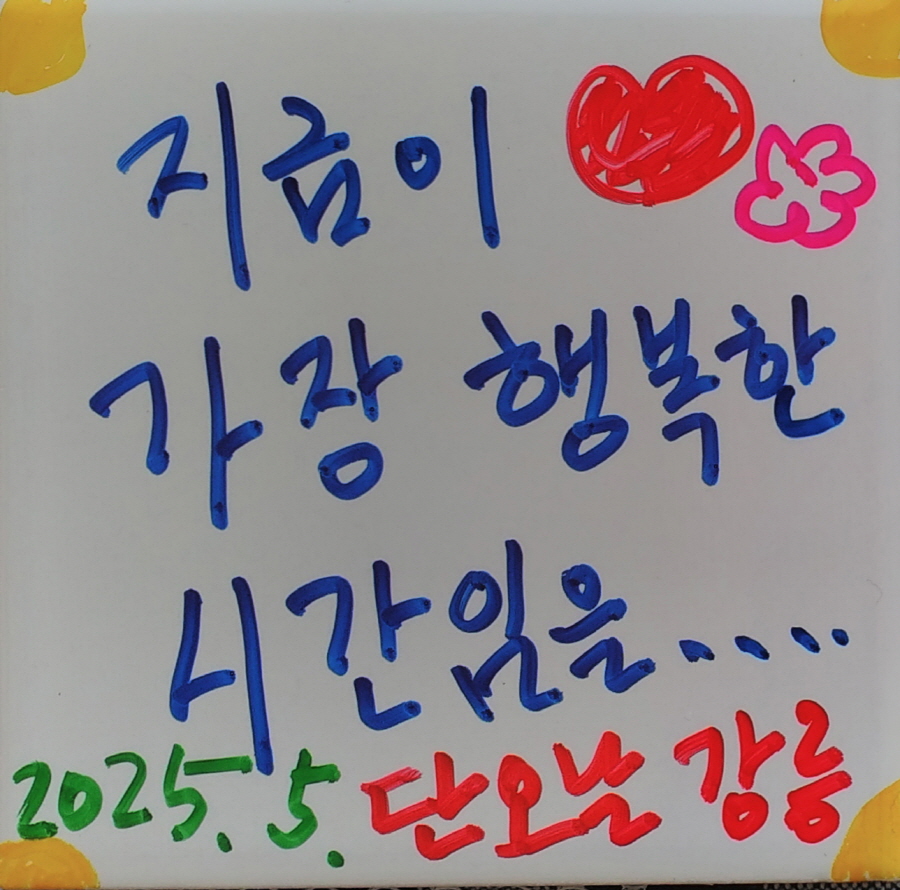 지금이
가장 행복한
시간임을.....
2025. 5. 단오날 강릉